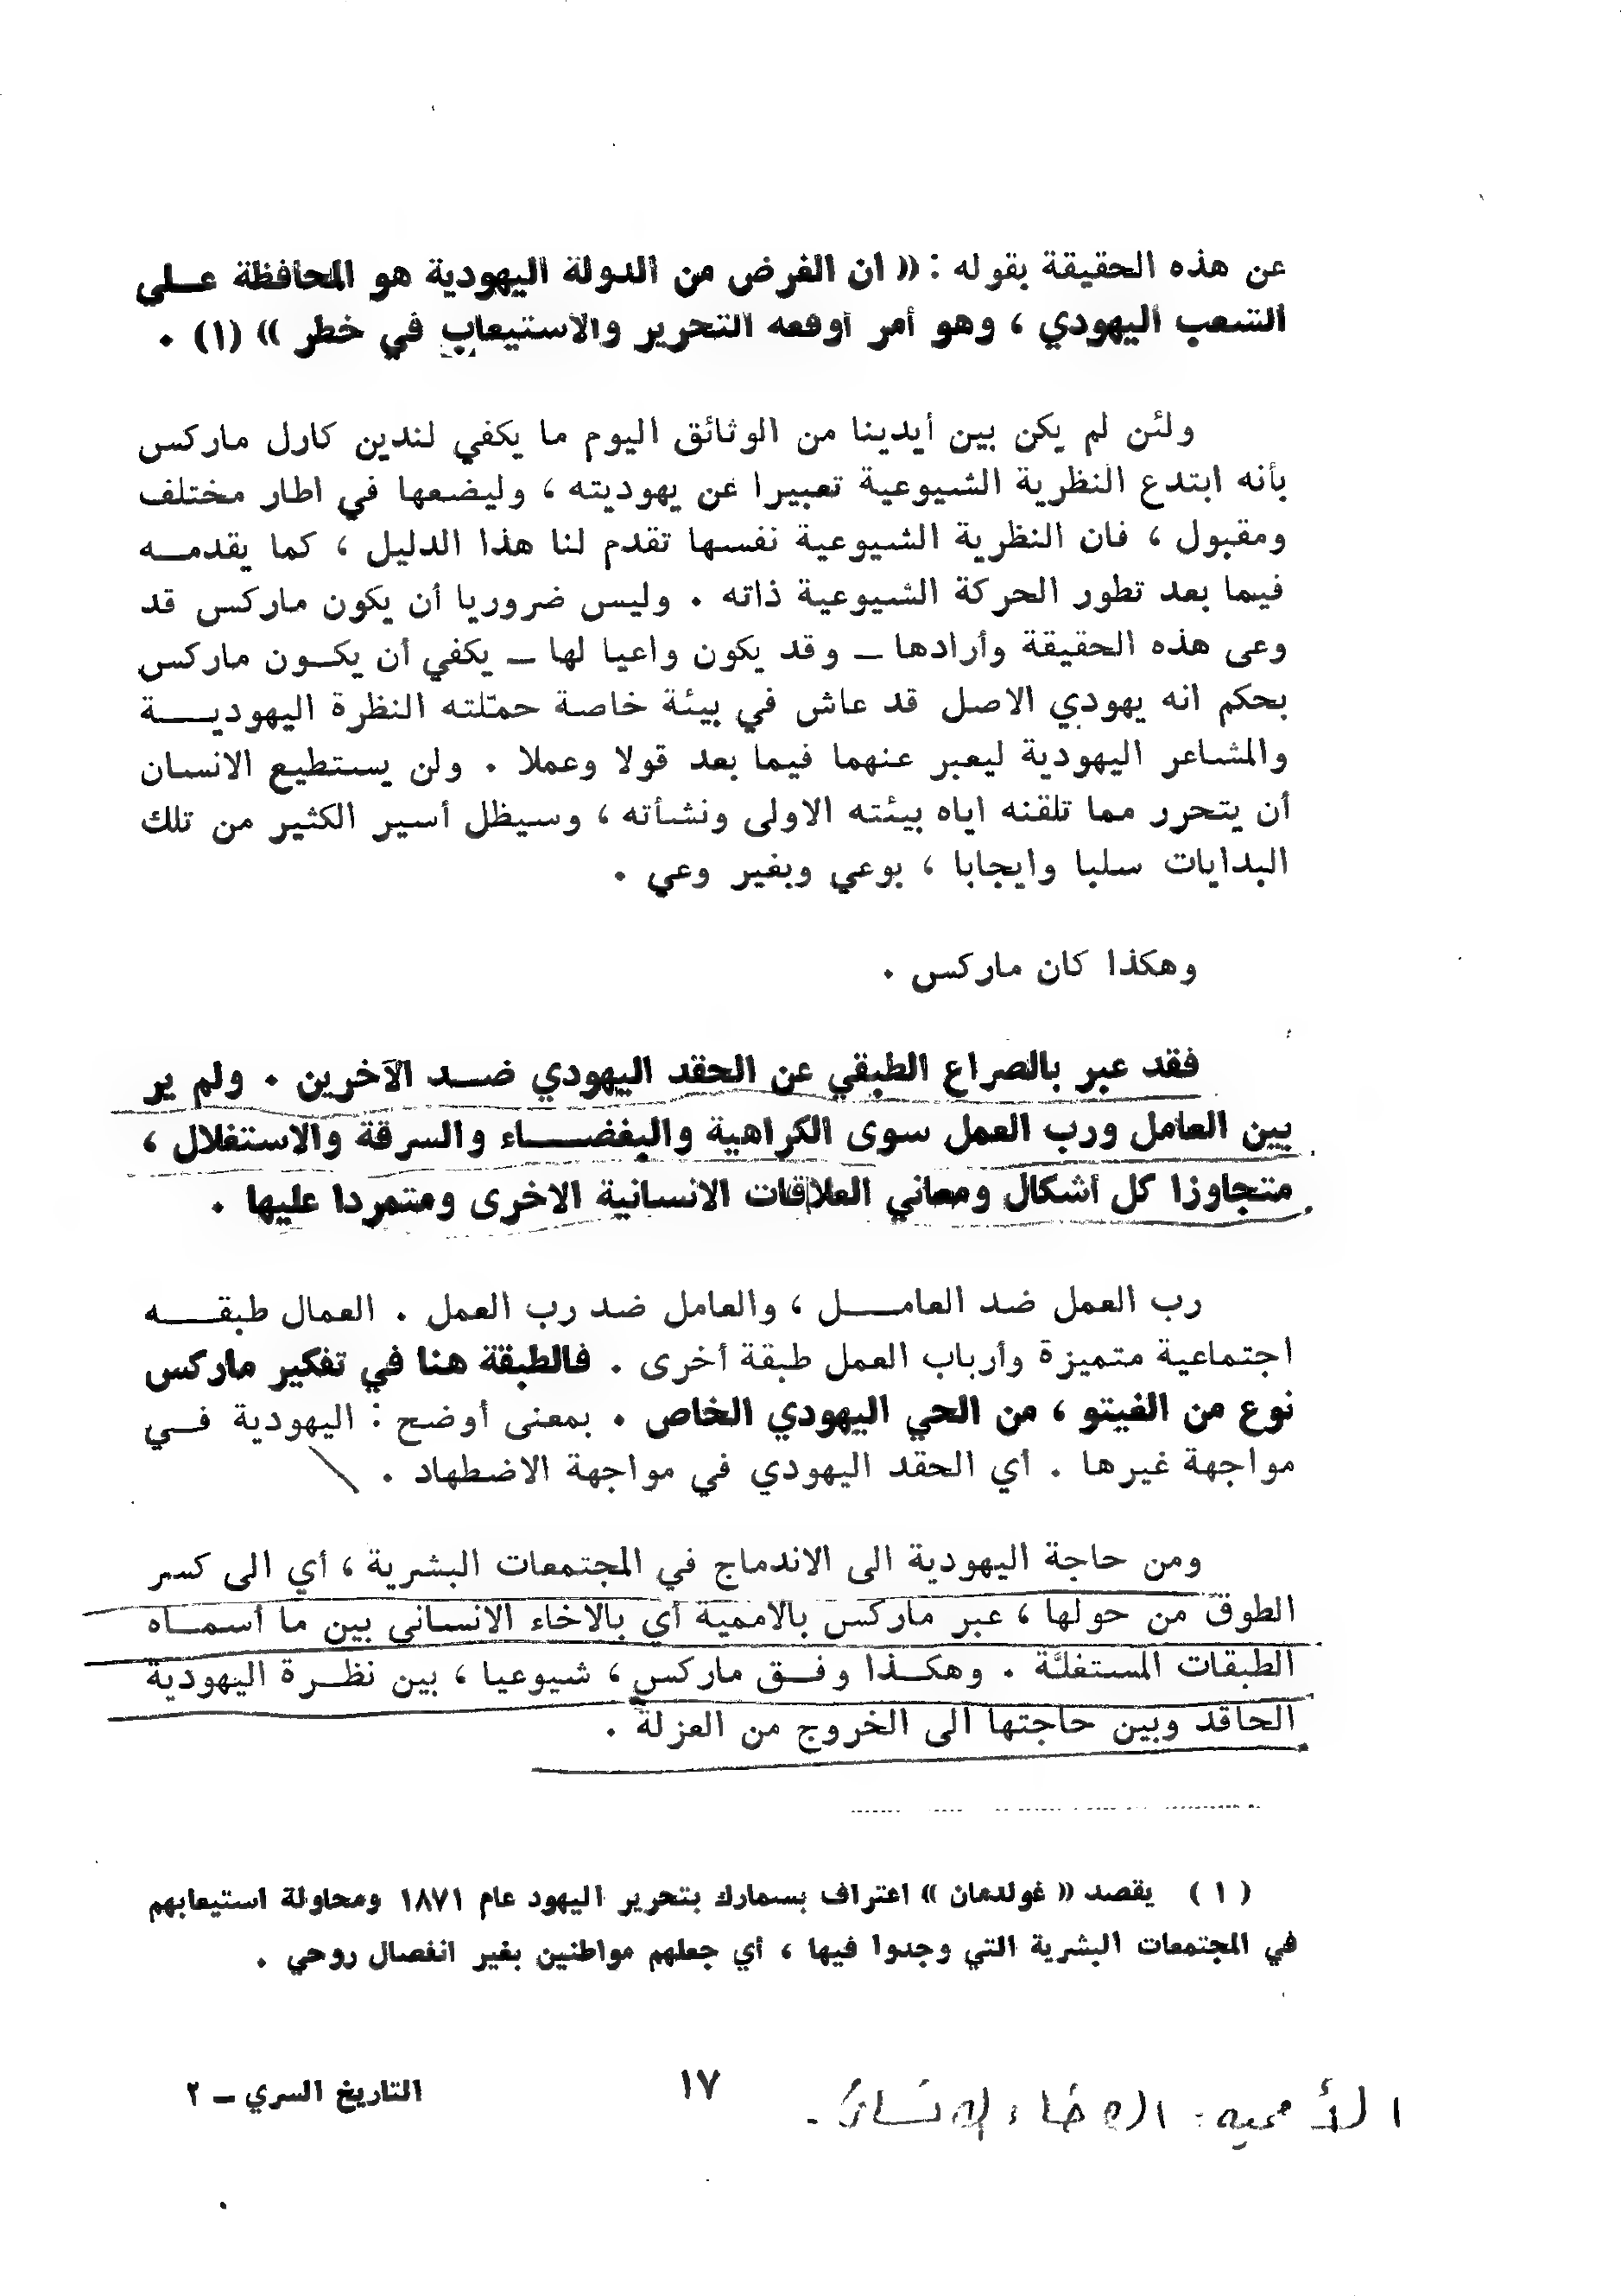 عن هذه الحقيقة بقوله : « ان الغرض من الدولة اليهودية هو المحافظة عـلى
الشعب اليهودي ، وهو أمر أوقعه التحرير والاستيعاب في خطر » (١) .
ولئن لم يكن بين أيدينا من الوثائق اليوم ما يكفي لندين كارل ماركس
بأنه ابتدع النظرية الشيوعية تعبيرا عن يهوديته ، وليضعها في اطار مختلف
ومقبول ، فان النظرية الشيوعية نفسها تقدم لنا هذا الدليل ، كما يقدمـه
فيما بعد تطور الحركة الشيوعية ذاته . وليس ضروريا أن يكون ماركس قد
وعى هذه الحقيقة وأرادها ــ وقد يكون واعيا لها ــ يكفي أن يكـون ماركس
بحكم انه يهودي الاصل قد عاش في بيئة خاصة حمّلته النظرة اليهوديـة
والمشاعر اليهودية ليعبر عنهما فيما بعد قولا وعملا . ولن يستطيع الانسان
أن يتحرر مما تلقنه اياه بيئته الاولى ونشأته ، وسيظل أسير الكثير من تلك
البدايات سلبا وايجابا ، بوعي وبغير وعي .
وهكذا كان ماركس .
فقد عبر بالصراع الطبقي عن الحقد اليهودي ضـد الآخرين . ولم ير
بين العامل ورب العمل سوى الكراهية والبغضـاء والسرقة والاستغلال ،
متجاوزا كل أشكال ومعاني العلاقات الانسانية الاخرى ومتمردا عليها .
رب العمل ضد العامـل ، والعامل ضد رب العمل . العمال طبقـه
اجتماعية متميزة وأرباب العمل طبقة أخرى . فالطبقة هنا في تفكير ماركس
نوع من الغيتو ، من الحي اليهودي الخاص . بمعنى أوضح : اليهودية فـي
مواجهة غيرها . أي الحقد اليهودي في مواجهة الاضطهاد .
ومن حاجة اليهودية الى الاندماج في المجتمعات البشرية ، أي الى كسر
الطوق من حولها ، عبر ماركس بالاممية أي بالاخاء الانساني بين ما أسمـاه
الطبقات المستغلَّة . وهكـذا وفـق ماركس ، شيوعيا ، بين نظـرة اليهودية
الحاقد وبين حاجتها الى الخروج من العزلة .
( ١ ) يقصد « غولدمان » اعتراف بسمارك بتحرير اليهود عام ١٨٧١ ومحاولة استيعابهم
في المجتمعات البشرية التي وجدوا فيها ، أي جعلهم مواطنين بغير انفصال روحي .
الأممية : الاخاء الانساني .
١٧
التاريخ السري ــ ٢